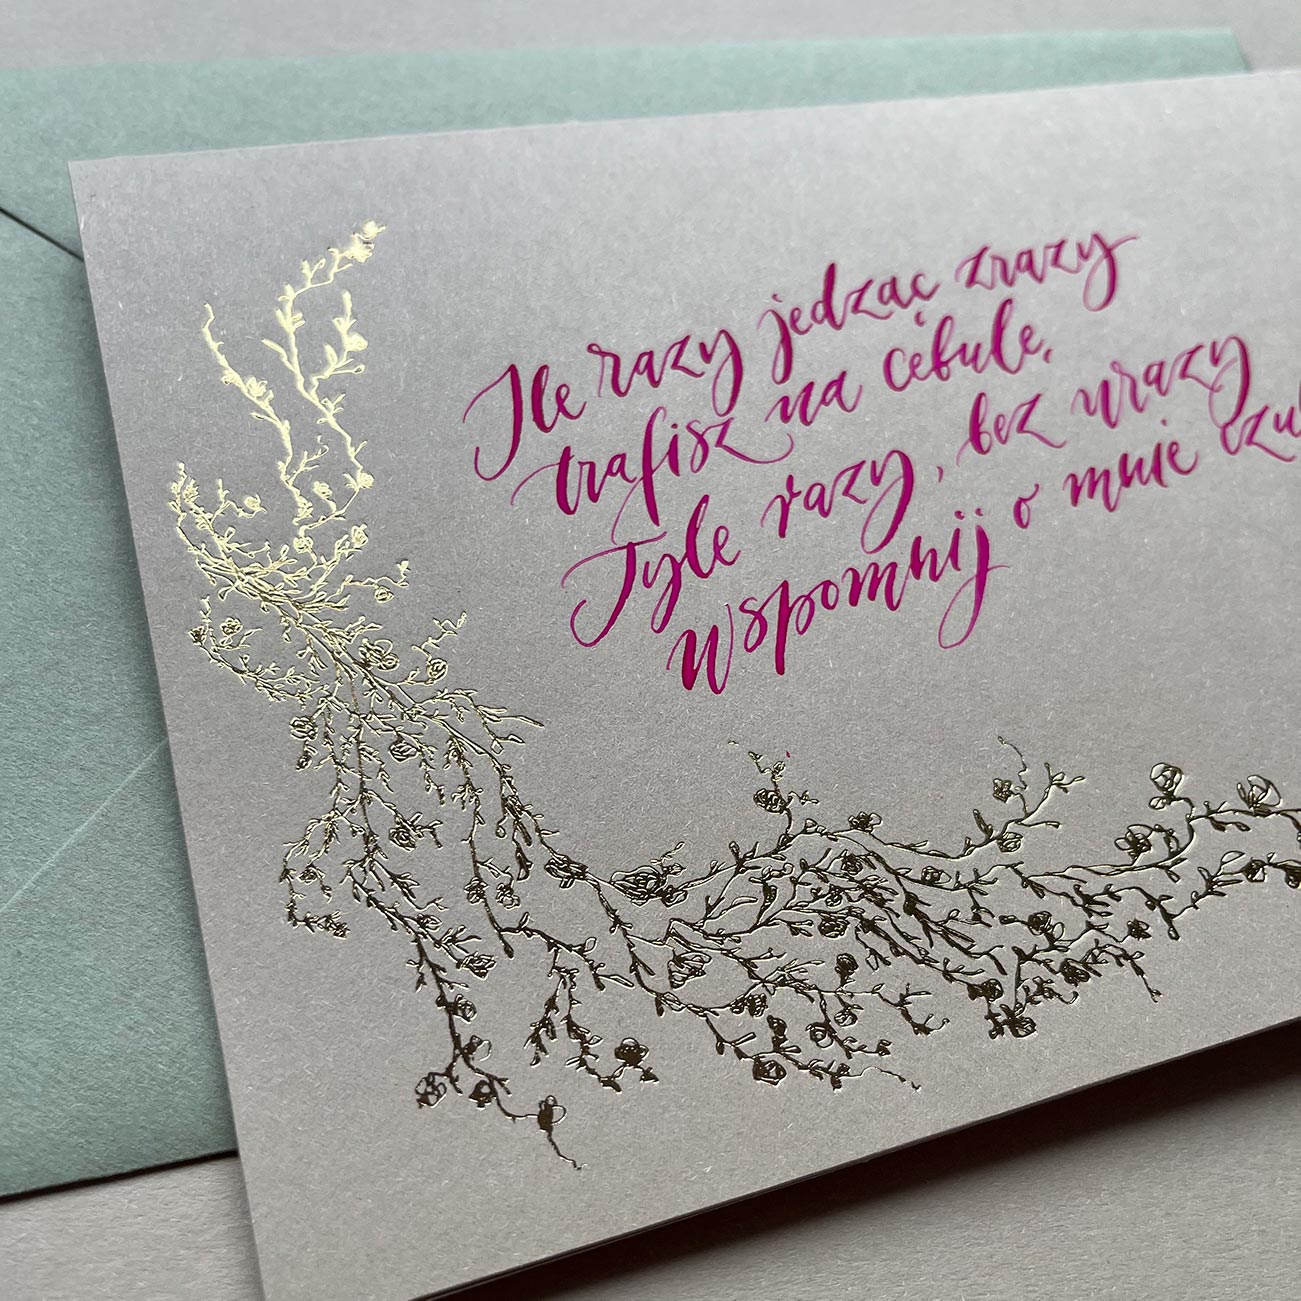 Ile razy jedząc zrazy
trafisz na cebulę,
Tyle razy, bez urazy
wspomnij o mnie